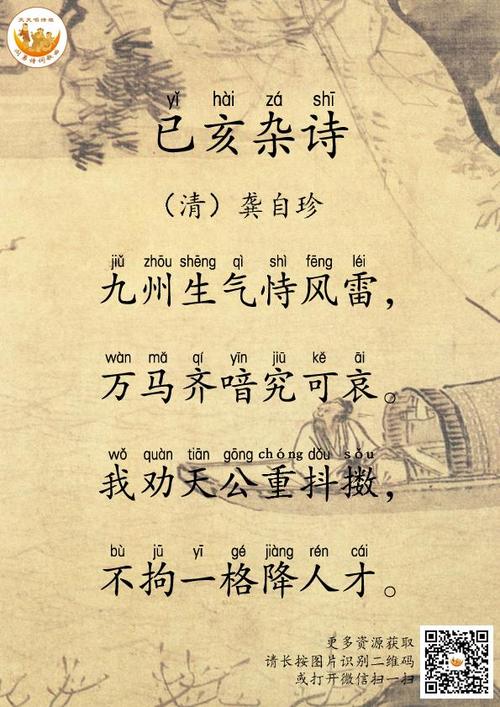 yǐ hài zá shī
已亥杂诗
（清）龚自珍
jiǔ zhōu shēng qì shì fēng léi
九州生气恃风雷，
wàn mǎ qí yīn jiū kě āi
万马齐喑究可哀。
wǒ quàn tiān gōng chóng dǒu sǒu
我劝天公重抖擞，
bù jū yī gé jiàng rén cái
不拘一格降人才。
更多资源获取
请长按图片识别二维码
或打开微信扫一扫